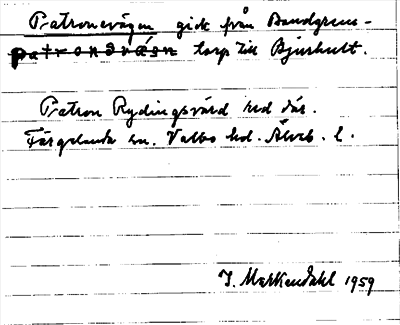 Patronevägen gick från Bondgrens-
patronᵊvǽgᵊn torp till Bjurhult.
Patron Rydingsvärd red där.
Färgelanda sn. Valbo hd. Älvsb. l.
J. Markendahl 1959